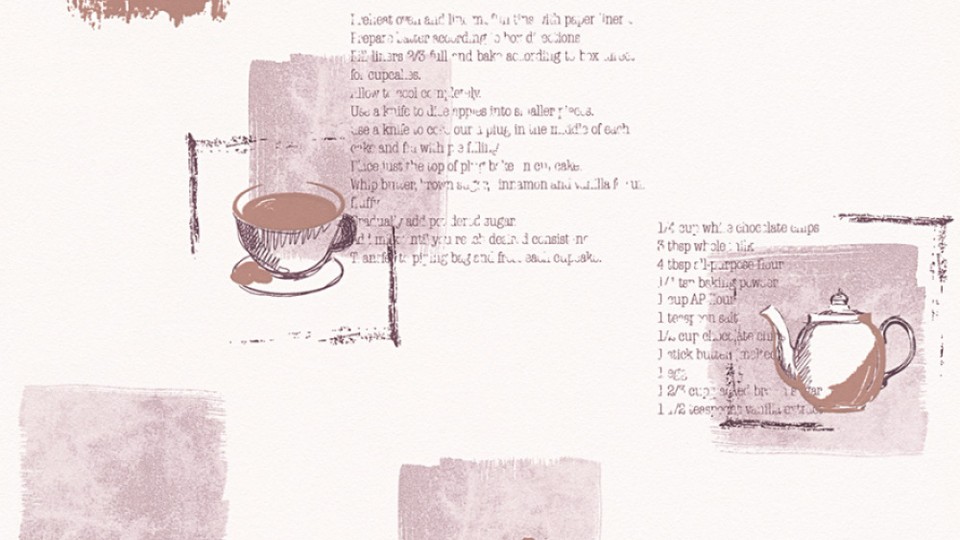 Preheat oven and line muffin tins with paper liners.
Prepare batter according to box directions
Fill liners 2/3 full and bake according to box
for cupcakes.
Allow to cool completely.
Use a knife to dice apples into smaller pieces.
Use a knife to core out a plug in the middle of each
cake and fill with pie filling
Place just the top of plug back on cupcake.
Whip butter, brown sugar, cinnamon and vanilla
fluffy
Gradually add powdered sugar
Add milk until you reach desired consistency
Transfer to piping bag and frost each cupcake.
1/4 cup white chocolate chips
3 tbsp whole milk
4 tbsp all-purpose flour
tsp baking powder
1 cup AP flour
1 teaspoon salt
cup chocolate chips
1 stick butter melted
eggs
1 2/3 cups packed brown sugar
1 1/2 teaspoons vanilla extract